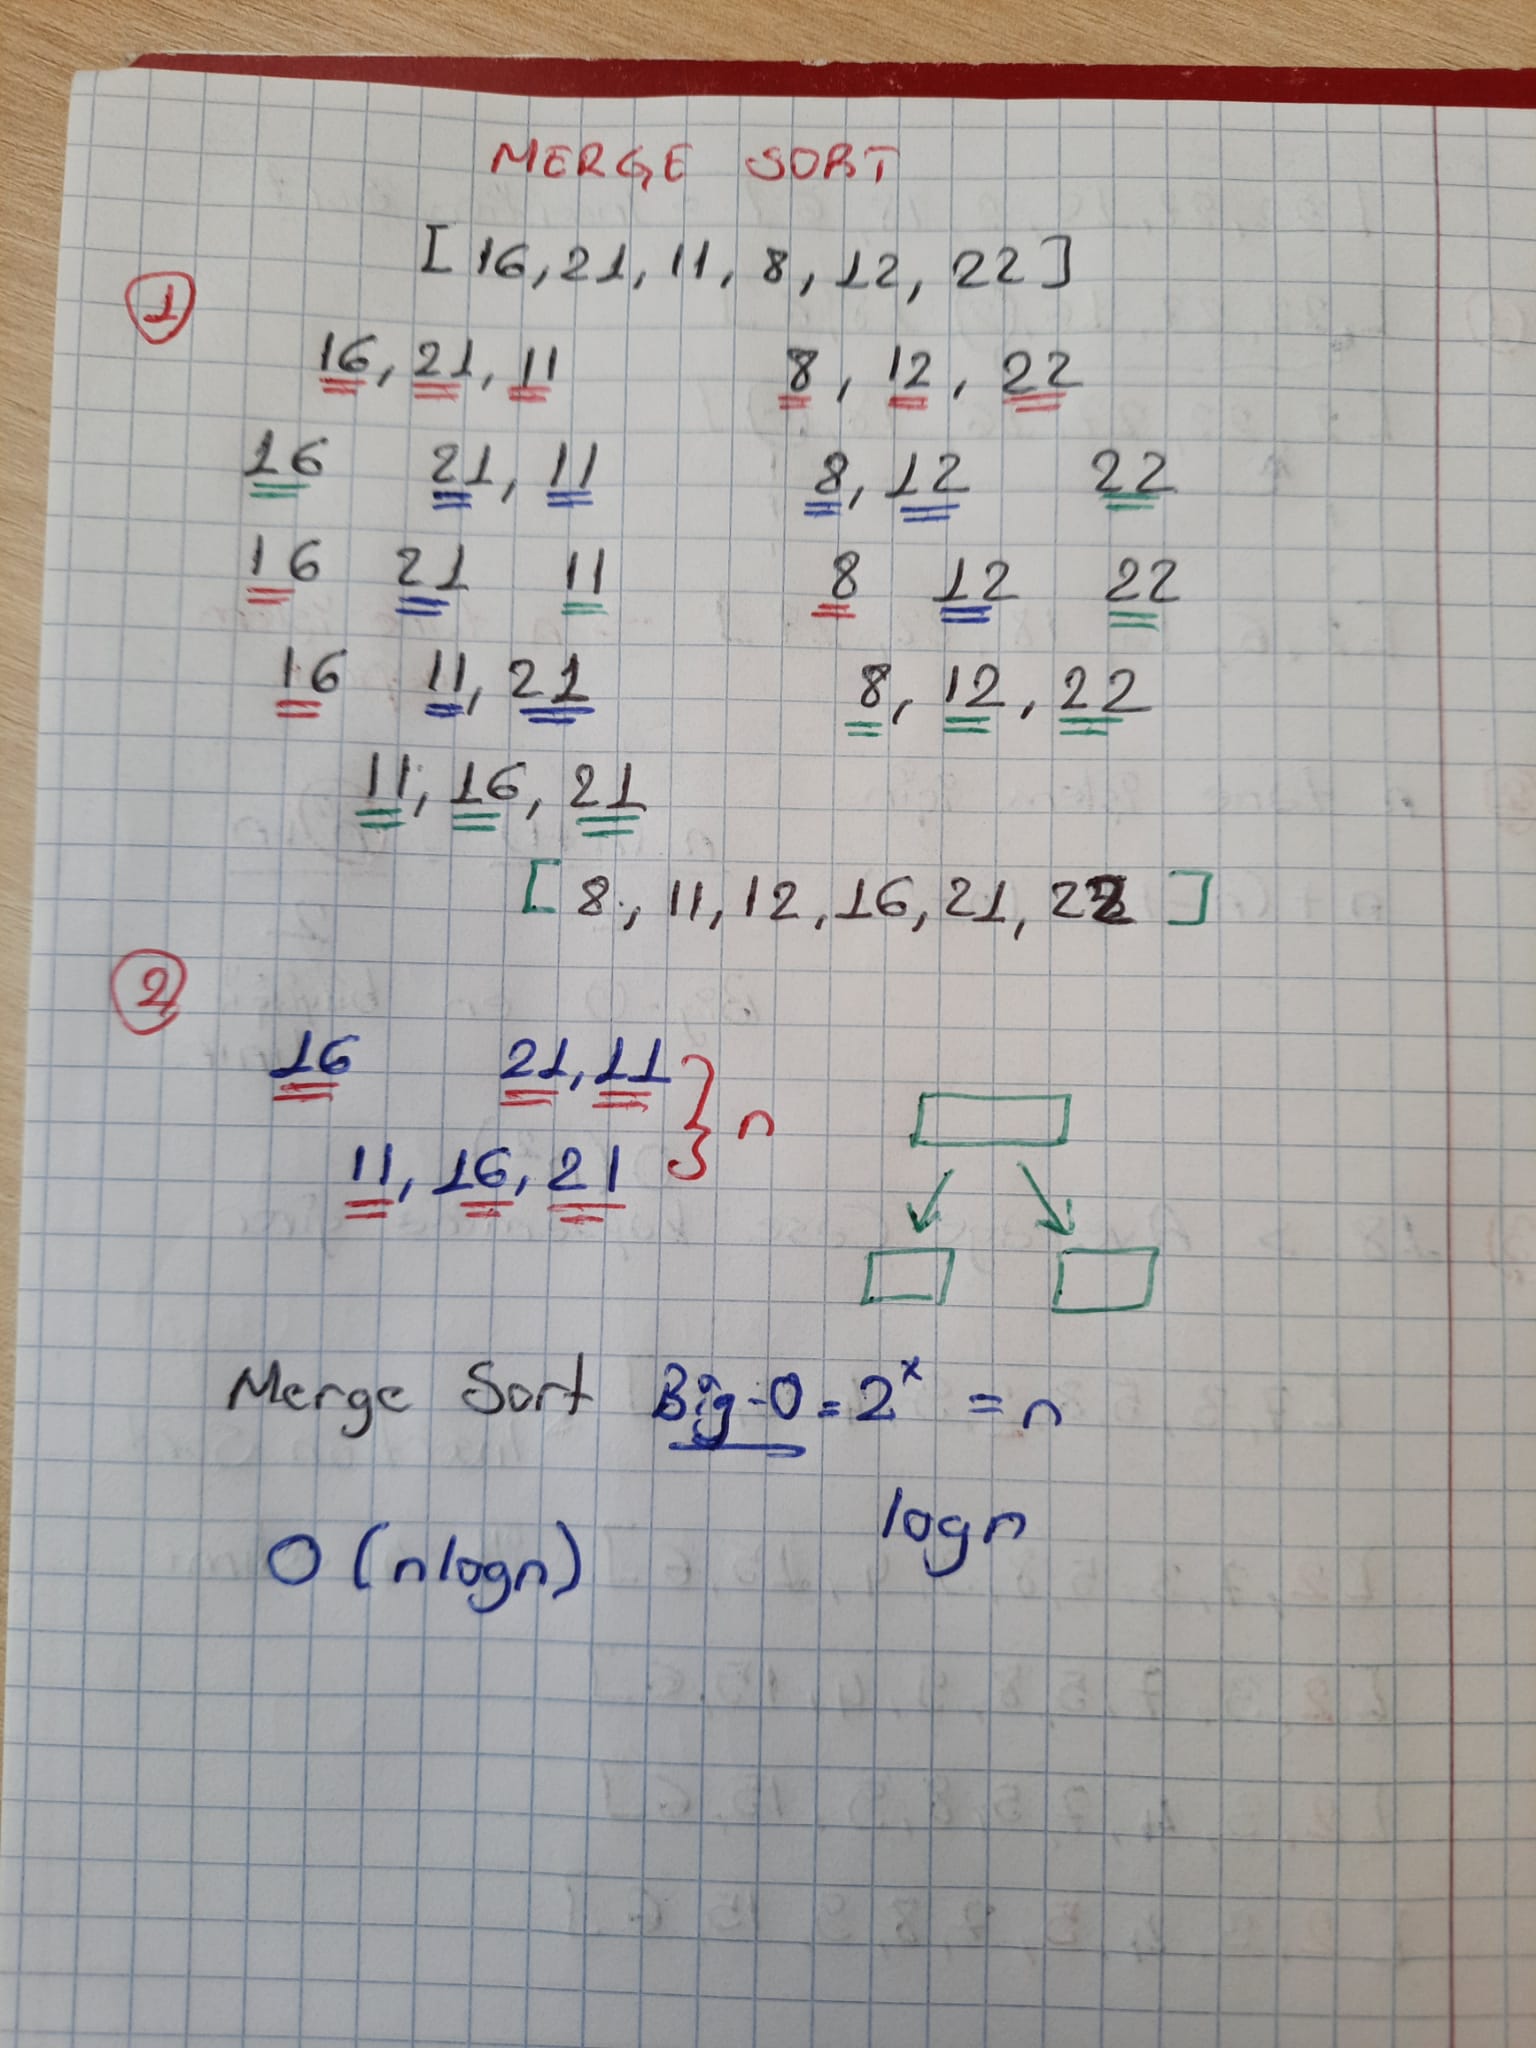 MERGE SORT
[16, 21, 11, 8, 12, 22]
1
16, 21, 11 8, 12, 22
16 21, 11 8, 12 22
16 21 11 8 12 22
16 11, 21 8, 12, 22
11, 16, 21
[8, 11, 12, 16, 21, 22]
2
16 21, 11 } n
11, 16, 21
Merge Sort Big-O = 2ˣ = n
logn
O (nlogn)